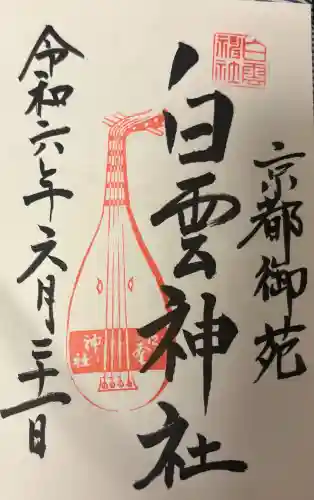 京都御苑
白雲神社
令和六年六月二十一日
白雲
神社